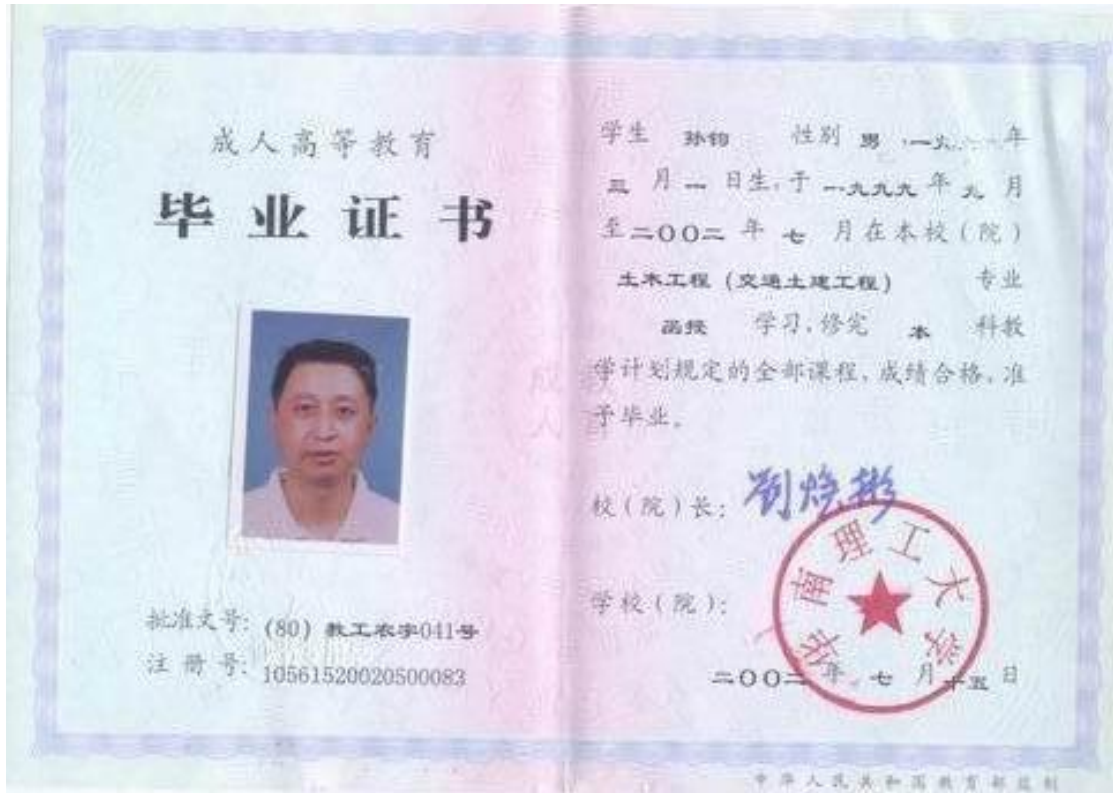 成人高等教育
毕业证书
批准文号: (80) 教工农字041号
注册号: 10561520020500083
学生 孙钧 性别 男,一九 年
三 月 一 日生,于 一九九九 年 九 月
至二〇〇二 年 七 月在本校(院)
土木工程 (交通土建工程) 专业
函授 学习,修完 本 科教
学计划规定的全部课程,成绩合格,准
予毕业。
校(院)长: 劉煥彬
学校(院):
华南理工大学
二〇〇二 年 七 月 十五 日
中华人民共和国教育部监制